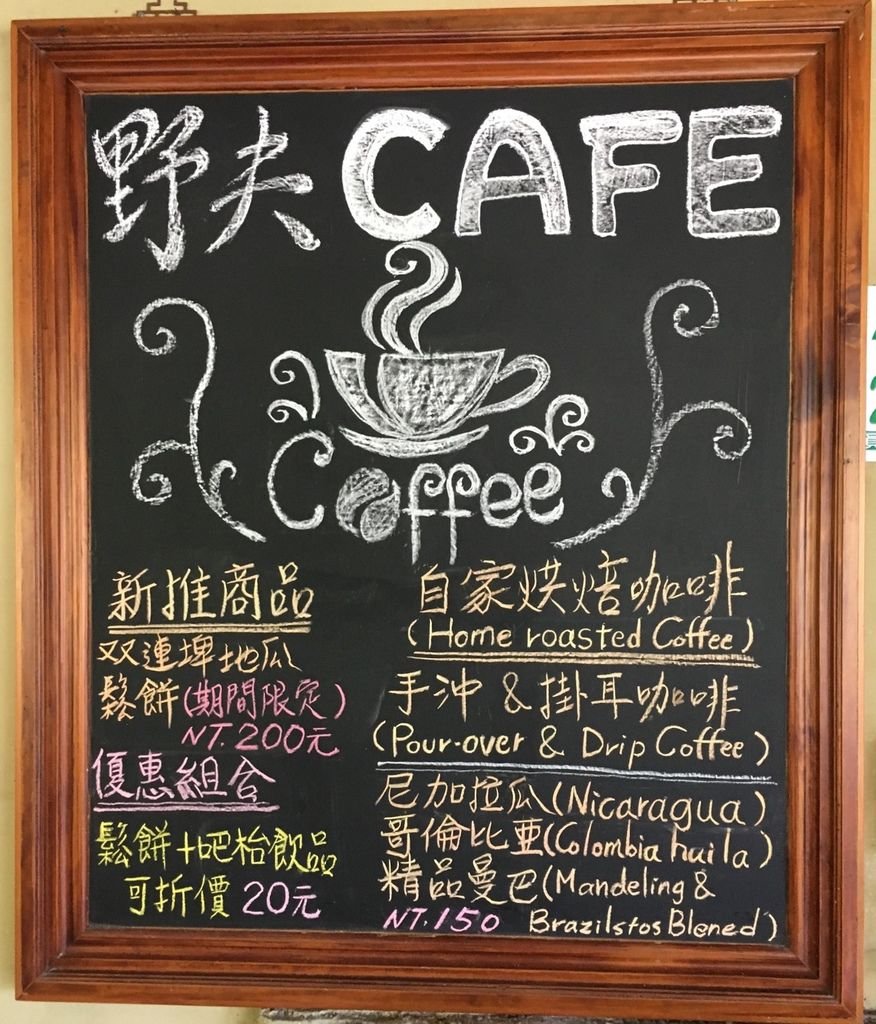 野夫 CAFE
Coffee
新推商品
双連埤地瓜
鬆餅(期間限定)
NT.200元
優惠組合
鬆餅+吧枱飲品
可折價 20元
自家烘焙咖啡
(Home roasted Coffee)
手沖 & 掛耳咖啡
(Pour-over & Drip Coffee)
尼加拉瓜(Nicaragua)
哥倫比亜(Colombia huila)
精品曼巴(Mandeling &
NT.150 Brazilstos Blened)